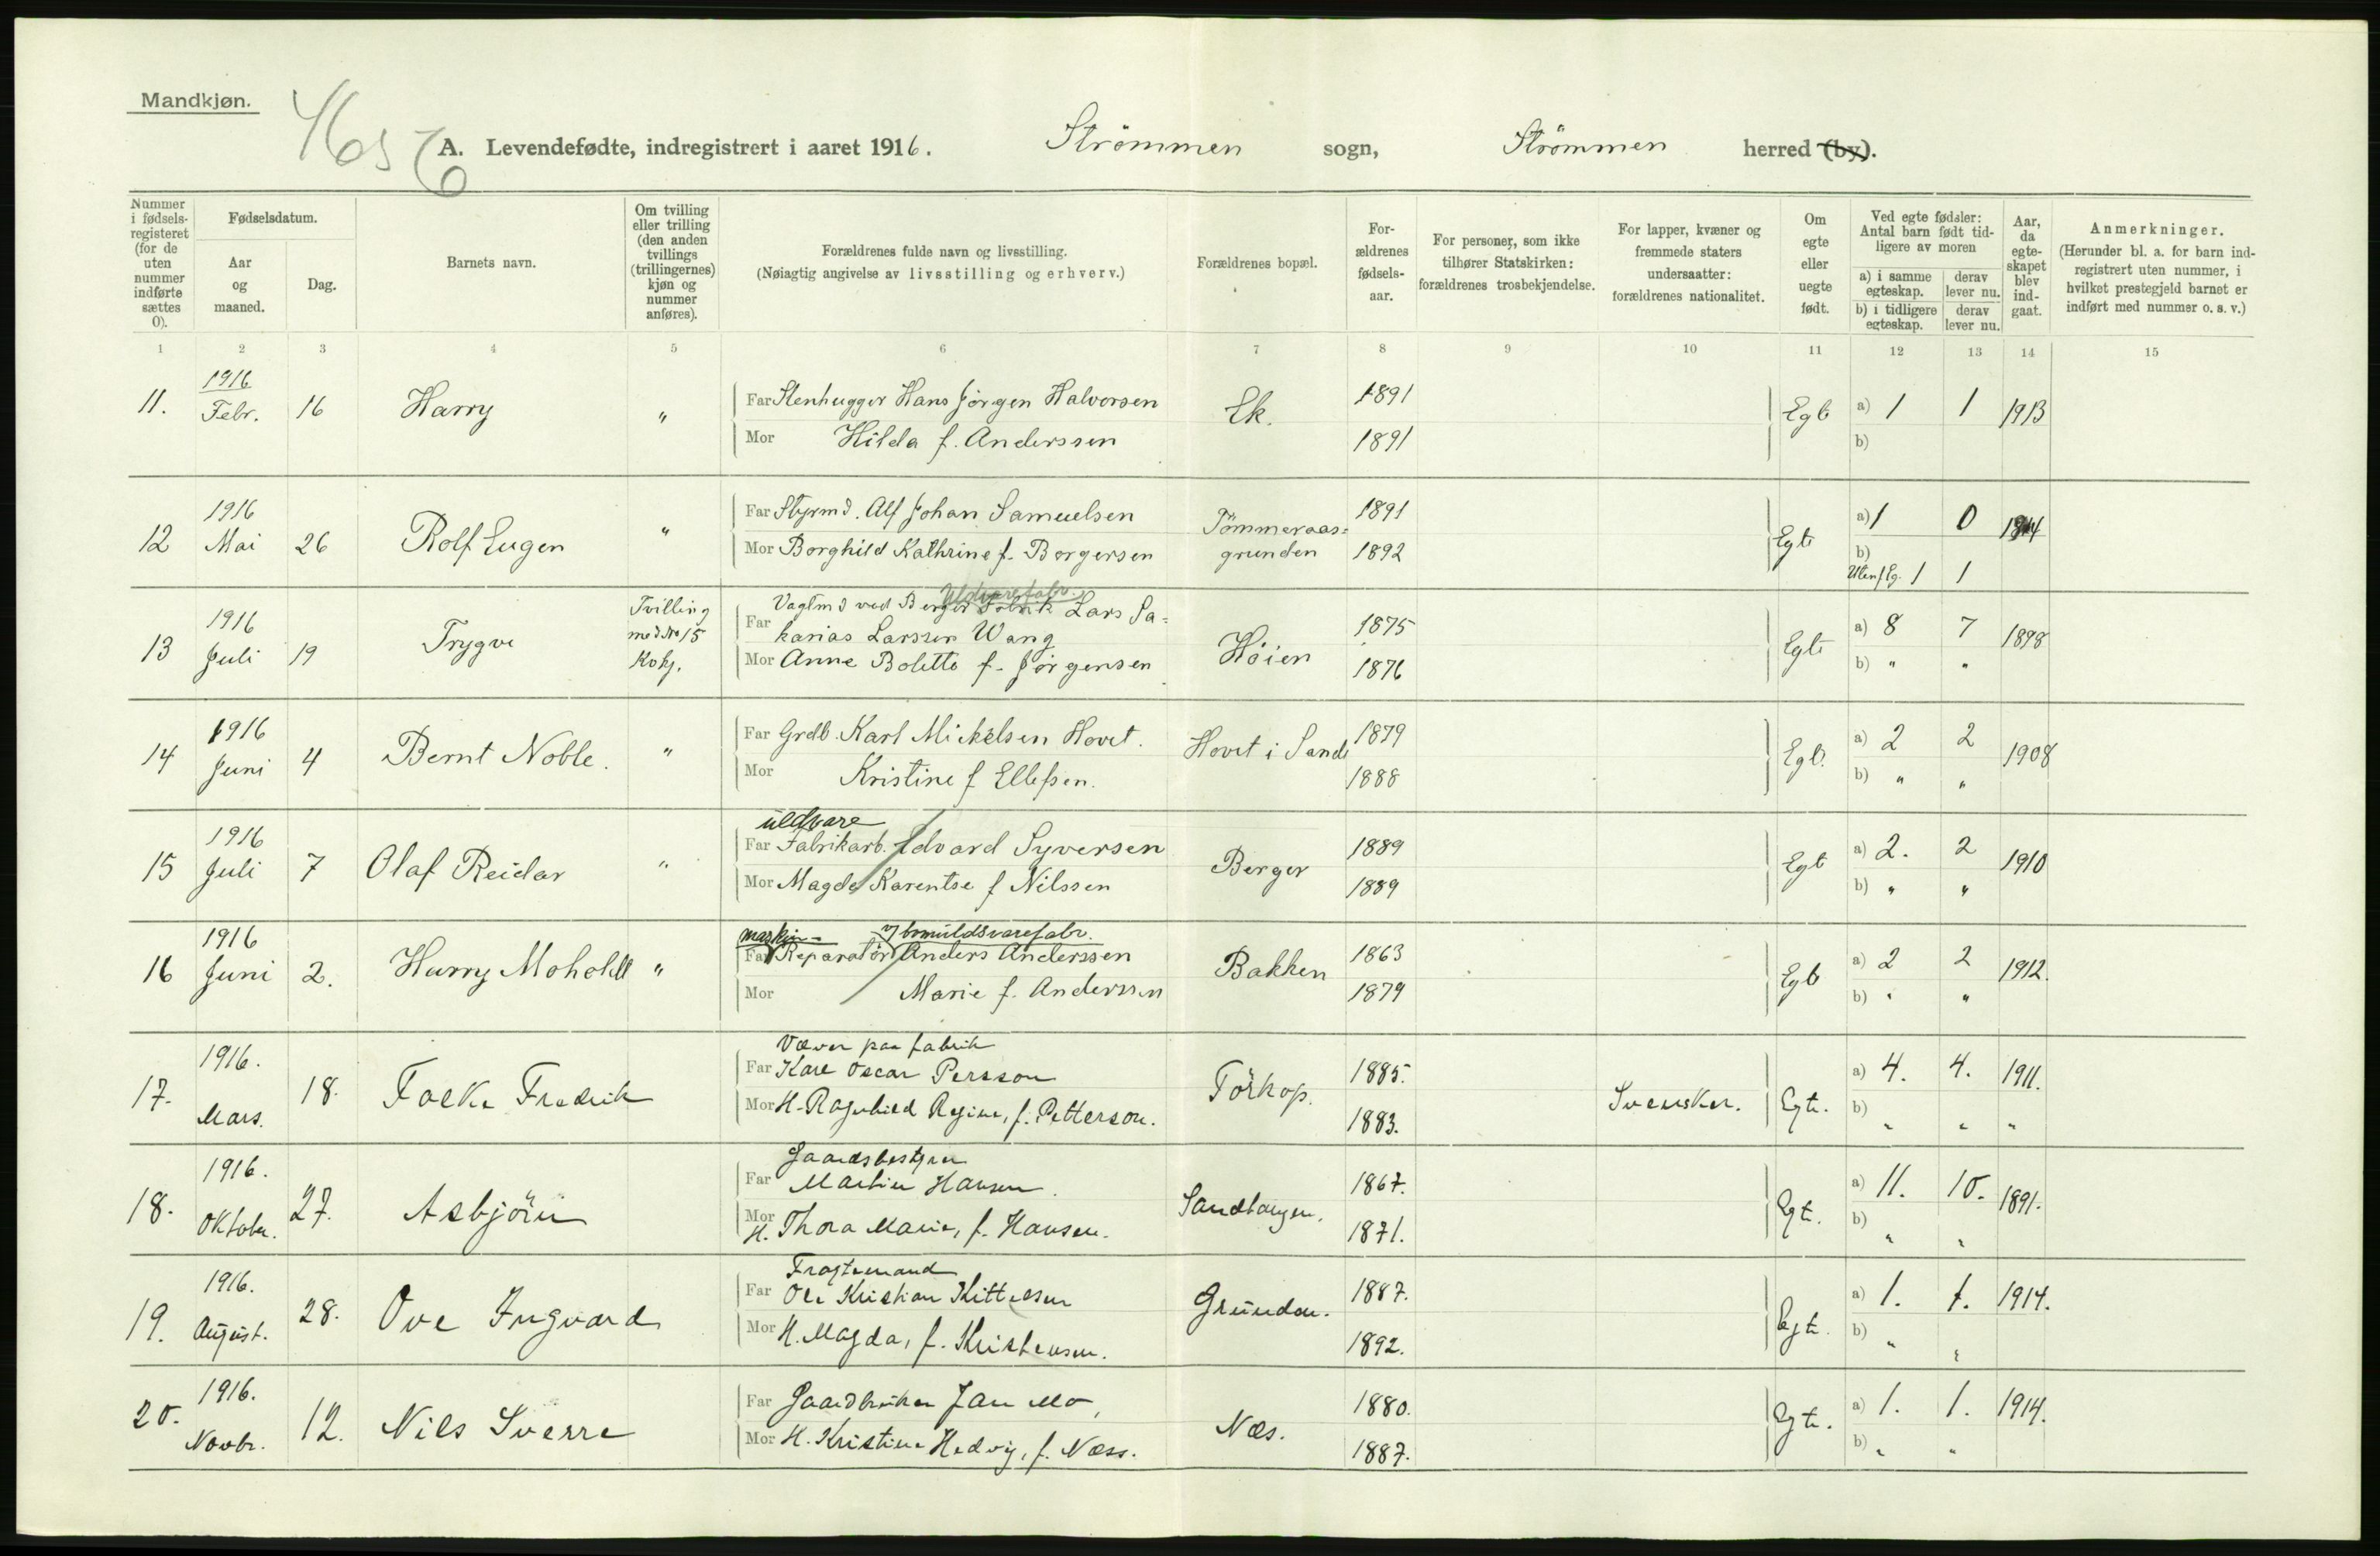 Mandkjøn.
A. Levendefødte, indregistrert i aaret 1916. Strömmen sogn, Strömmen herred (by).
Nummer i fødsels-registeret (for de uten nummer indførte sættes 0).
Fødselsdatum.
Aar og maaned.
Dag.
Barnets navn.
Om tvilling eller trilling (den anden tvillings (trillingernes) kjøn og nummer anføres).
Forældrenes fulde navn og livsstilling.
(Nøiagtig angivelse av livsstilling og erhverv.)
Forældrenes bopæl.
For-ældrenes fødsels-aar.
For personer, som ikke tilhører Statskirken: forældrenes trosbekjendelse.
For lapper, kvæner og fremmede staters undersaatter: forældrenes nationalitet.
Om egte eller uegte født.
Ved egte fødsler: Antal barn født tid-ligere av moren
a) i samme egteskap. derav lever nu.
b) i tidligere egteskap. derav lever nu.
Aar, da egte-skapet blev ind-gaat.
Anmerkninger.
(Herunder bl. a. for barn ind-registrert uten nummer, i hvilket prestegjeld barnet er indført med nummer o. s. v.)
1 2 3 4 5 6 7 8 9 10 11 12 13 14 15
11. 1916 Febr. 16 Harry "
Far Stenhugger Hans Jörgen Halvorsen Ek. 1891 Egte a) 1 1 1913
Mor Hilda f. Anderssen 1891 b)
12 1916 Mai 26 Rolf Eugen "
Far Styrmd. Alf Johan Samuelsen Tömmeraas=grunden 1891 Egte a) 1 0 1914
Mor Borghild Kathrine f. Borgersen 1892 b)
Uten f. Eg. 1 1
13 1916 Juli 19 Trygve Tvilling med No 15 Kvkj.
Uldvarefabr.
Vagtmd ved Berger Fabrik Lars Sa=
Far karias Larssen Wang Höien 1875 Egte a) 8 7 1898
Mor Anne Bolette f. Jörgensen 1876 b) " "
14 1916 Juni 4 Bernt Noble. "
Far Grdb. Karl Mickelsen Hovet. Hovet i Sande 1879 Egte. a) 2 2 1908
Mor Kristine f Ellefsen. 1888 b) " "
15 1916 Juli 7 Olaf Reidar "
uldvare
Far Fabrikarb. Edvard Syversen Berger 1889 Egte a) 2. 2 1910
Mor Magda Karentse f Nilssen 1889 b) " "
16 1916 Juni 2. Harry Moholdt "
maskin- v/ bomuldsvarefabr.
Far Reparatör Anders Anderssen Bakken 1863 Egte a) 2 2 1912.
Mor Marie f. Anderssen 1879 b) " "
17. 1916. Mars. 18. Folke Fredrik
Væver paa fabrik
Far Karl Oscar Persson Törkop. 1885. Svensker. Egte. a) 4. 4. 1911.
Mor H. Ragnhild Regine, f. Petterson. 1883. b) " " "
18. 1916. Oktober. 27. Asbjörn
Gaardsbestyrer
Far Martin Hansen. Sandtangen. 1867. Egte. a) 11. 10. 1891.
Mor H. Thora Marie, f. Hansen. 1871. b) " "
19. 1916. August. 28. Ove Ingvard
Fragtemand
Far Ole Kristian Kittelsen Grunden. 1887. Egte. a) 1. 1. 1914.
Mor H. Magda, f. Kristensen. 1892. b) " "
20. 1916. Novbr. 12. Nils Sverre
Far Gaardbruker Jan Mo, Næs. 1880. Egte. a) 1. 1. 1914.
Mor H. Kristine Hedvig, f. Næss. 1887. b) " "